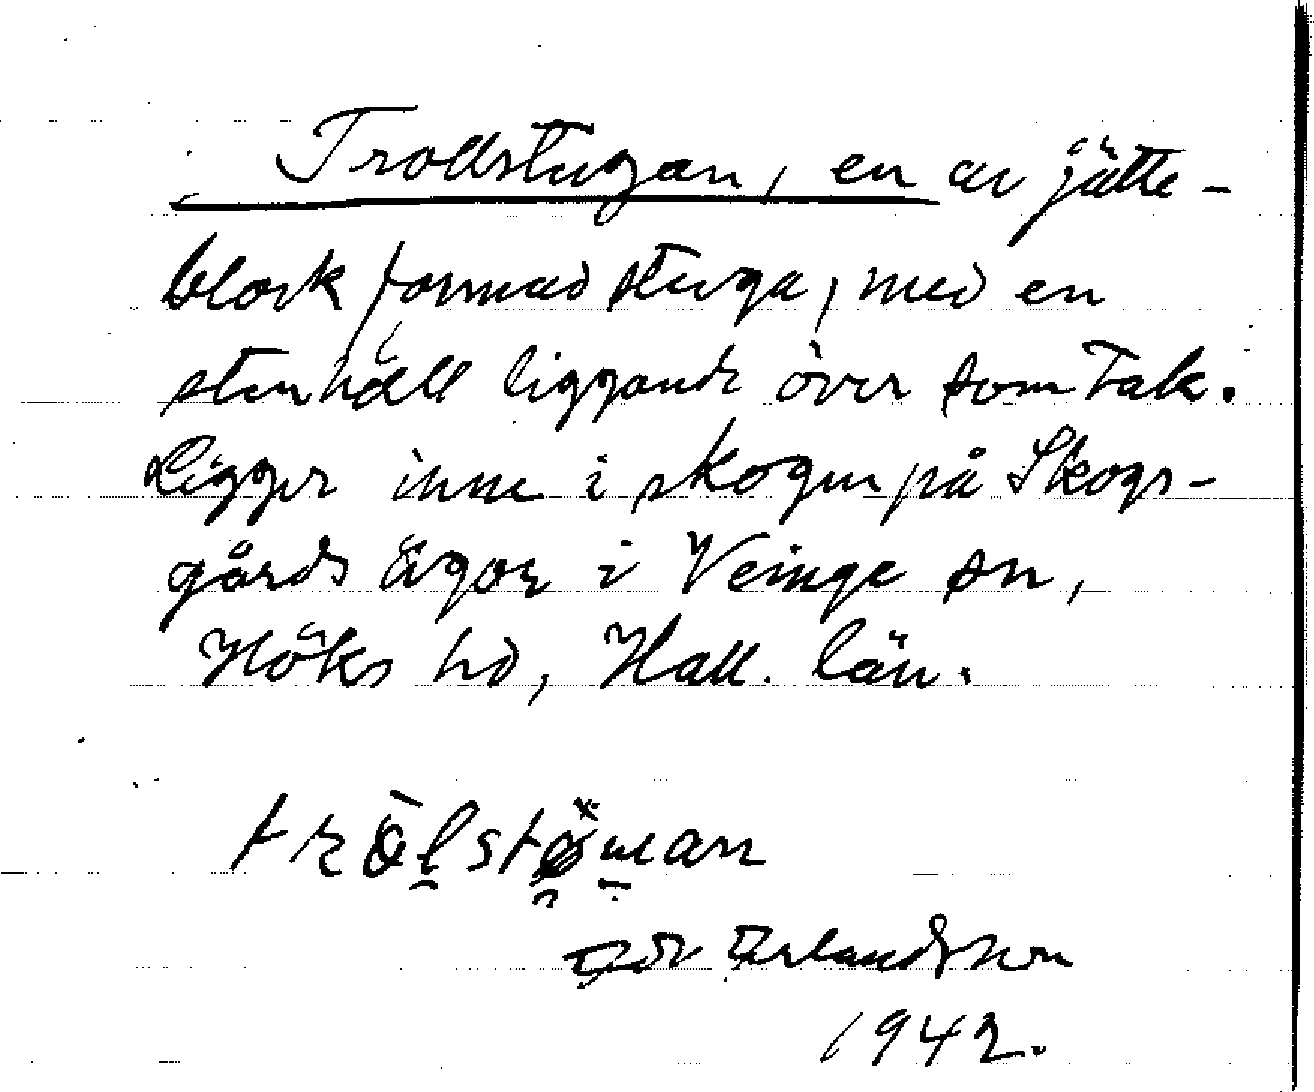 Trollstugan, en av jätte-
block formad stuga, med en
stenhäll liggande över som tak.
Ligger inne i skogen på Skogs-
gårds ägor i Veinge sn,
Höks hd, Hall. län.
Erlandsson
1942.